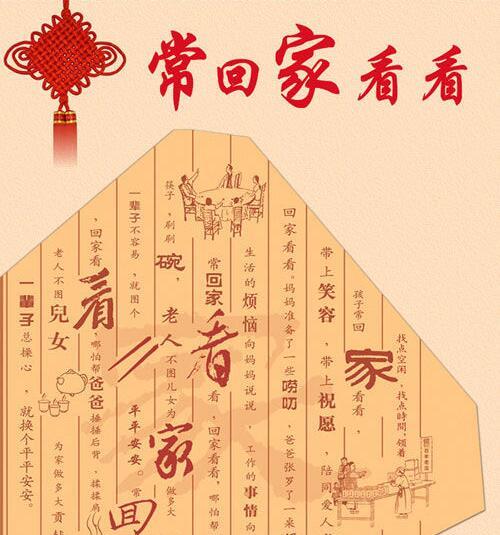 常回家看看
找点空闲，找点時間，领着
孩子常回家看看，
带上笑容，带上祝愿，陪同爱人
回家看看。妈妈准备了一些唠叨，爸爸张罗了一
生活的烦恼向妈妈说说，工作的事情向
常回家看看，回家看看，哪怕帮
筷子，刷刷碗，老人不图儿女为家做多大
一辈子不容易，就图个平平安安。常回
，回家看看，哪怕帮爸爸捶捶后背，揉揉肩
老人不图兒女为家做多大贡
一辈子总操心，就换个平平安安。